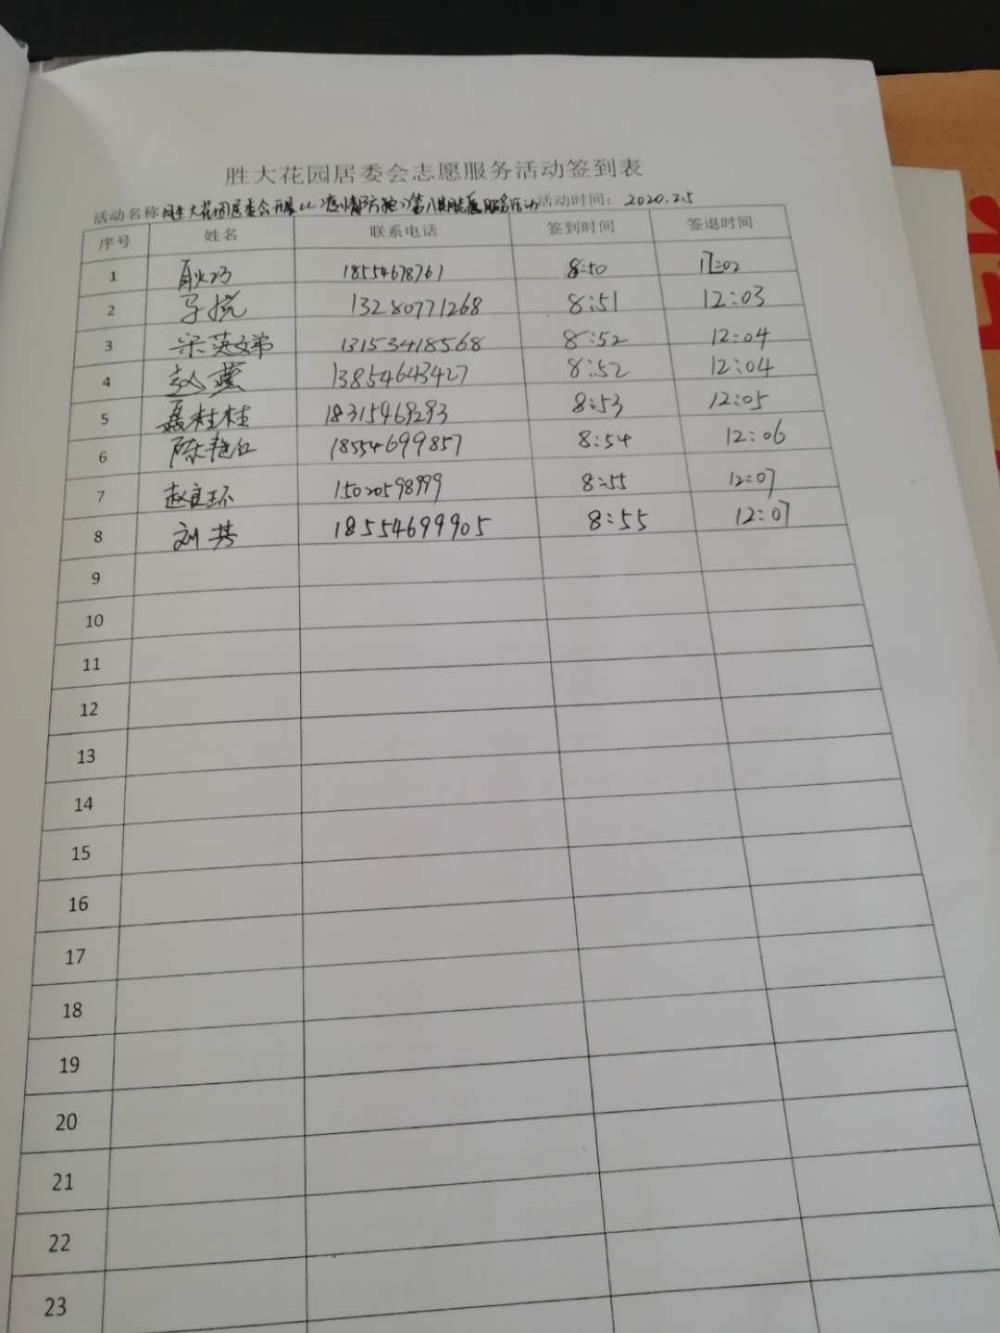 胜大花园居委会志愿服务活动签到表
活动名称 胜大花园居委会开展《疫情防控》第八期志愿服务活动 活动时间：2020.2.5
序号 姓名 联系电话 签到时间 签退时间
1 耿巧 18554678761 8:50 12:02
2 13280771268 8:51 12:03
3 宋英娣 13153418568 8:52 12:04
4 赵莹 13854643427 8:52 12:04
5 聂桂桂 18315469293 8:53 12:05
6 陈艳红 18554699857 8:54 12:06
7 赵宝环 15020598999 8:55 12:07
8 刘芳 18554699905 8:55 12:07
9
10
11
12
13
14
15
16
17
18
19
20
21
22
23